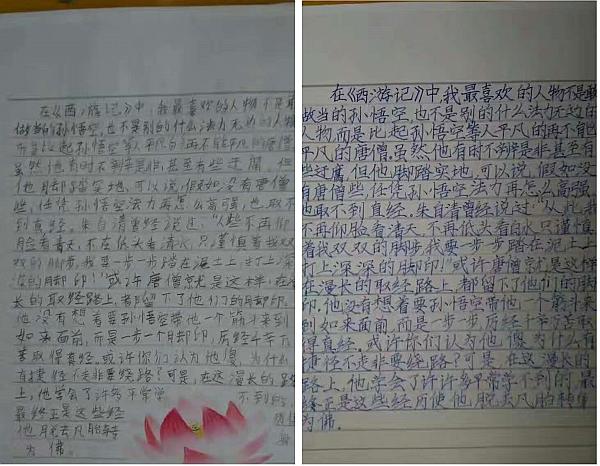 在《西游记》中,我最喜欢的人物不是敢
做当的孙悟空,也不是别的什么法力无边的人物
而是比起孙悟空
平凡的再不能平凡的唐僧
虽然他有时不辨是非,甚至有些迂腐,但
他脚踏实地,可以说,假如没有唐僧
些,任凭孙悟空法力再怎么高强,也取不
到真经。朱自清曾经说过:“从些不再仰
脸看青天,不在低头看清水,只谨慎着我双
双的脚步,我要一步一步踏在泥土上,打上深
深的脚印!”或许唐僧就是这样,在漫
长的取经路上,都留下了他们的脚印。
他没有想着要孙悟空带他一个筋斗来到
如来面前,而是一步一个脚印,历经千辛万
苦取得真经,或许你们认为他傻,为什么
有捷径不走非要绕路?可是,在这漫长的路
上,他学会了许多平常学
不到的,
最终正是这些经
他脱去凡胎转
为佛。
在《西游记》中,我最喜欢的人物不是敢
敢当的孙悟空,也不是别的什么法力无边的
人物而是比起孙悟空
人平凡的再不能
平凡的唐僧,虽然他有时不辨是非甚至有
些迂腐,但他脚踏实地,可以说,假如没
有唐僧些,任凭孙悟空法力再怎么高强,
也取不到真经。朱自清曾经说过:“从此我
不再仰脸看青天,不再低头看白水只谨慎
着我双双的脚步,我要一步一步踏在泥土上
打上深深的脚印!”或许唐僧就是这样
在漫长的取经路上,都留下了他们的脚
印。他没有想着要孙悟空带他一个筋斗来
到如来面前,而是一步一步,历经千辛万苦取
得真经。或许你们认为他傻,为什么有
捷径不走非要绕路?可是在这漫长的
路上,他学会了许许多平常学不到的,最
终正是这些经历使他脱去凡胎转
为佛。